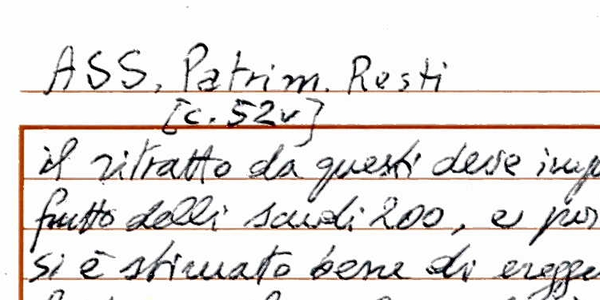 ASS, Patrim. Resti
[c. 52v]
il ritratto da questi deve
frutto delli scudi 200, e per
si è stimato bene di